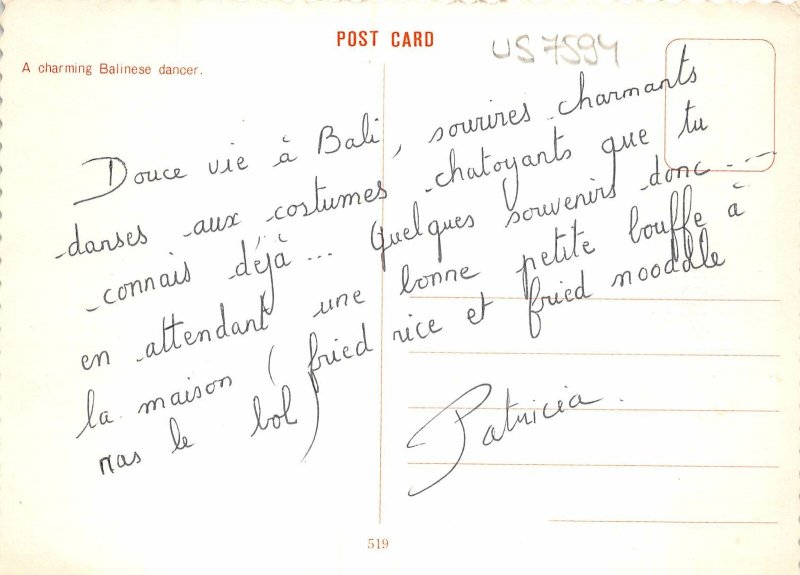 POST CARD
US7594
A charming Balinese dancer.
Douce vie à Bali, sourires charmants
danses aux costumes chatoyants que tu
connais déjà... Quelques souvenirs donc....
en attendant une bonne petite bouffe à
la maison (fried rice et fried nooddle
ras le bol)
Patricia.
519